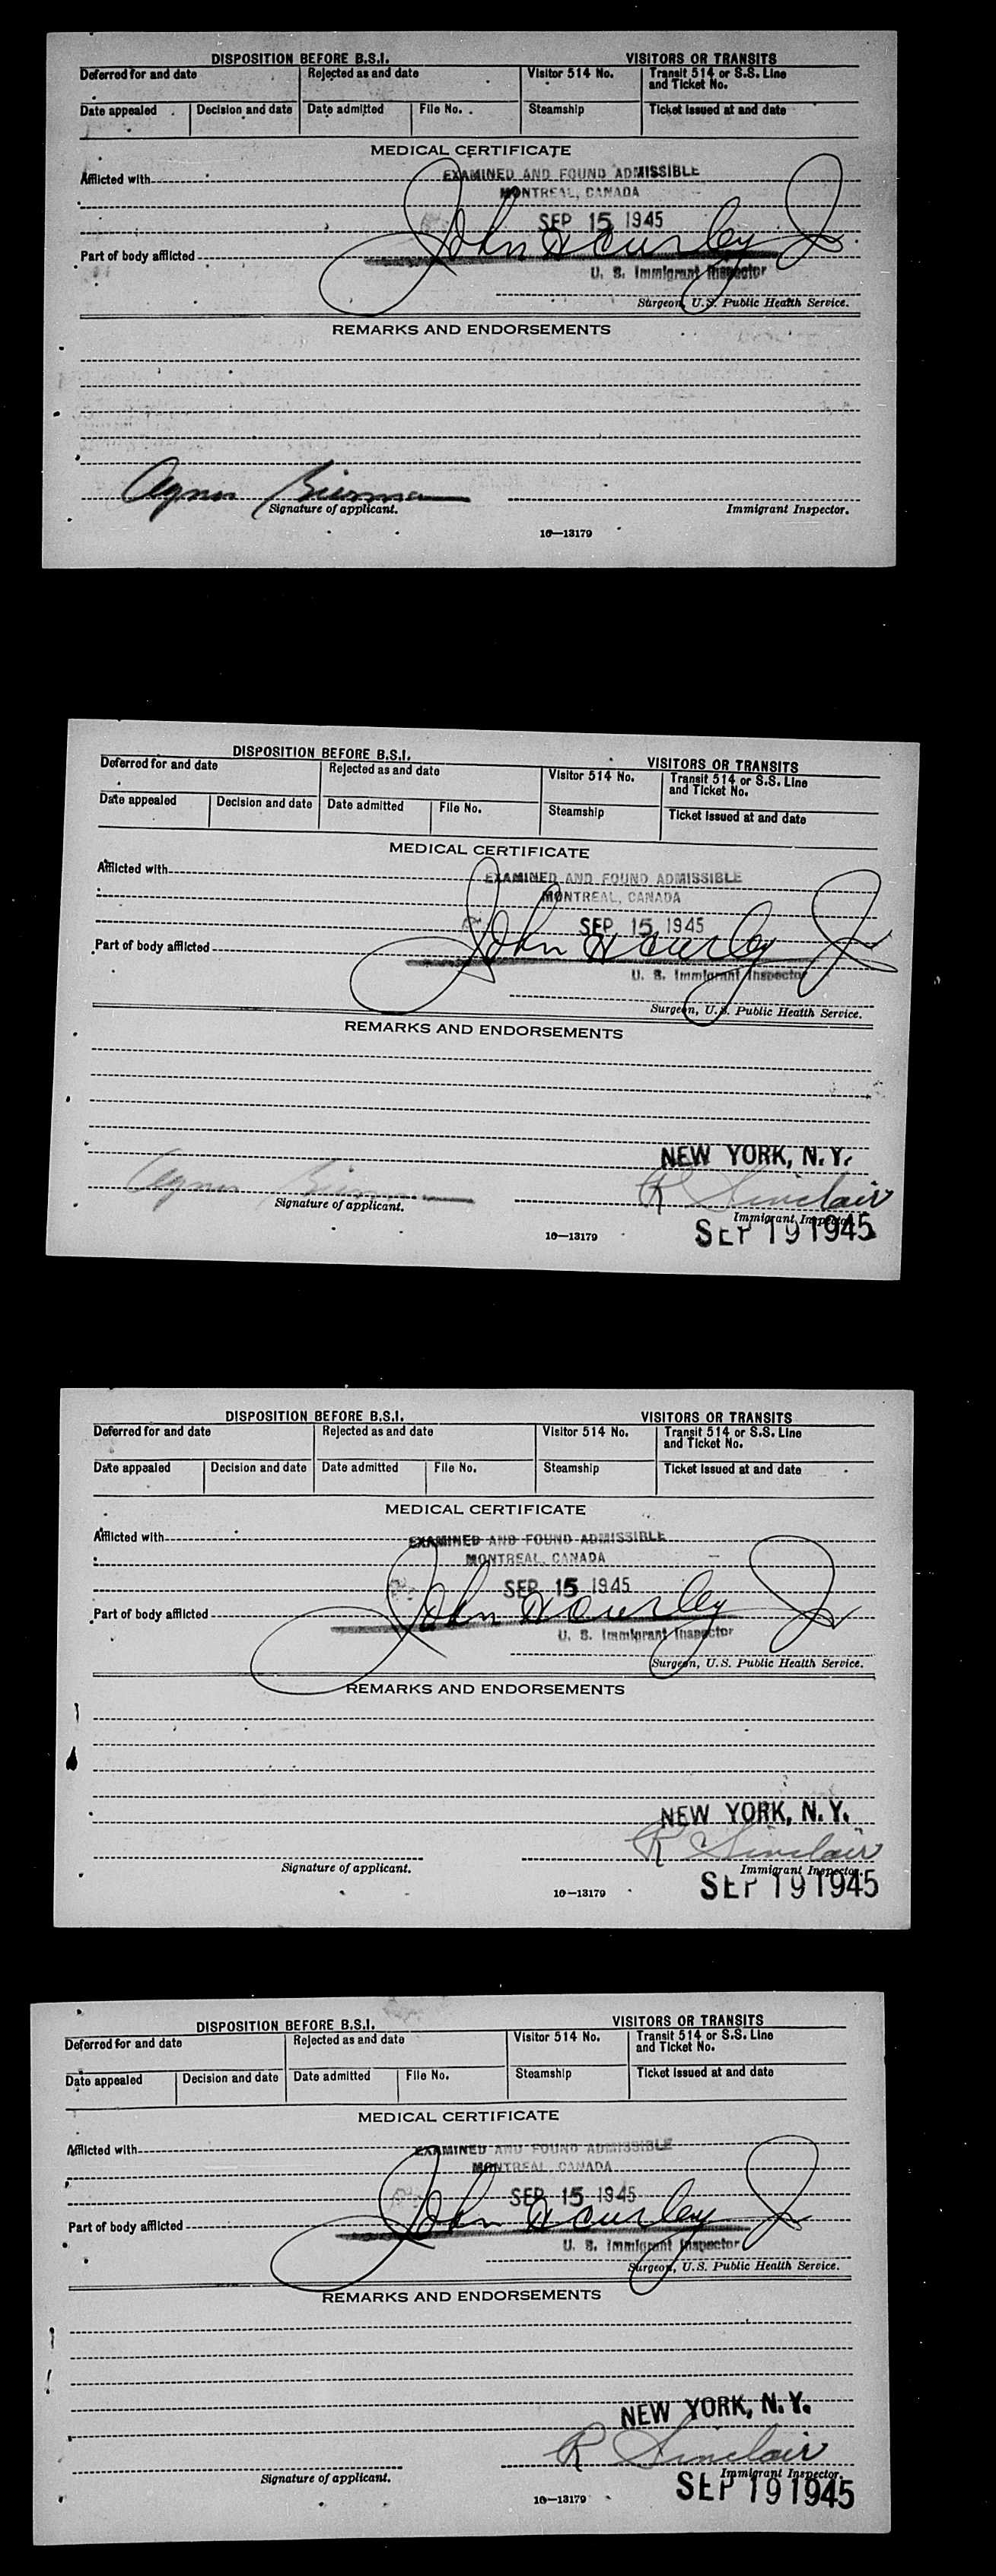 DISPOSITION BEFORE B.S.I. VISITORS OR TRANSITS
Deferred for and date Rejected as and date Visitor 514 No. Transit 514 or S.S. Line and Ticket No.
Date appealed Decision and date Date admitted File No. Steamship Ticket issued at and date
MEDICAL CERTIFICATE
Afflicted with
EXAMINED AND FOUND ADMISSIBLE
MONTREAL, CANADA
SEP 15 1945
John Jr
Part of body afflicted
U. S. Immigrant Inspector
Surgeon, U.S. Public Health Service.
REMARKS AND ENDORSEMENTS
Agnes Bierman
Signature of applicant. Immigrant Inspector.
16—13179
DISPOSITION BEFORE B.S.I. VISITORS OR TRANSITS
Deferred for and date Rejected as and date Visitor 514 No. Transit 514 or S.S. Line and Ticket No.
Date appealed Decision and date Date admitted File No. Steamship Ticket issued at and date
MEDICAL CERTIFICATE
Afflicted with
EXAMINED AND FOUND ADMISSIBLE
MONTREAL, CANADA
SEP 15 1945
John Jr
Part of body afflicted
U. S. Immigrant Inspector
Surgeon, U.S. Public Health Service.
REMARKS AND ENDORSEMENTS
NEW YORK, N.Y.
Agnes Bierman R Sinclair
Signature of applicant. Immigrant Inspector.
SEP 19 1945
16—13179
DISPOSITION BEFORE B.S.I. VISITORS OR TRANSITS
Deferred for and date Rejected as and date Visitor 514 No. Transit 514 or S.S. Line and Ticket No.
Date appealed Decision and date Date admitted File No. Steamship Ticket issued at and date
MEDICAL CERTIFICATE
Afflicted with
EXAMINED AND FOUND ADMISSIBLE
MONTREAL, CANADA
SEP 15 1945
John Jr
Part of body afflicted
U. S. Immigrant Inspector
Surgeon, U.S. Public Health Service.
REMARKS AND ENDORSEMENTS
NEW YORK, N.Y.
R Sinclair
Signature of applicant. Immigrant Inspector.
SEP 19 1945
16—13179
DISPOSITION BEFORE B.S.I. VISITORS OR TRANSITS
Deferred for and date Rejected as and date Visitor 514 No. Transit 514 or S.S. Line and Ticket No.
Date appealed Decision and date Date admitted File No. Steamship Ticket issued at and date
MEDICAL CERTIFICATE
Afflicted with
EXAMINED AND FOUND ADMISSIBLE
MONTREAL, CANADA
SEP 15 1945
John Jr
Part of body afflicted
U. S. Immigrant Inspector
Surgeon, U.S. Public Health Service.
REMARKS AND ENDORSEMENTS
NEW YORK, N.Y.
R Sinclair
Signature of applicant. Immigrant Inspector.
SEP 19 1945
16—13179